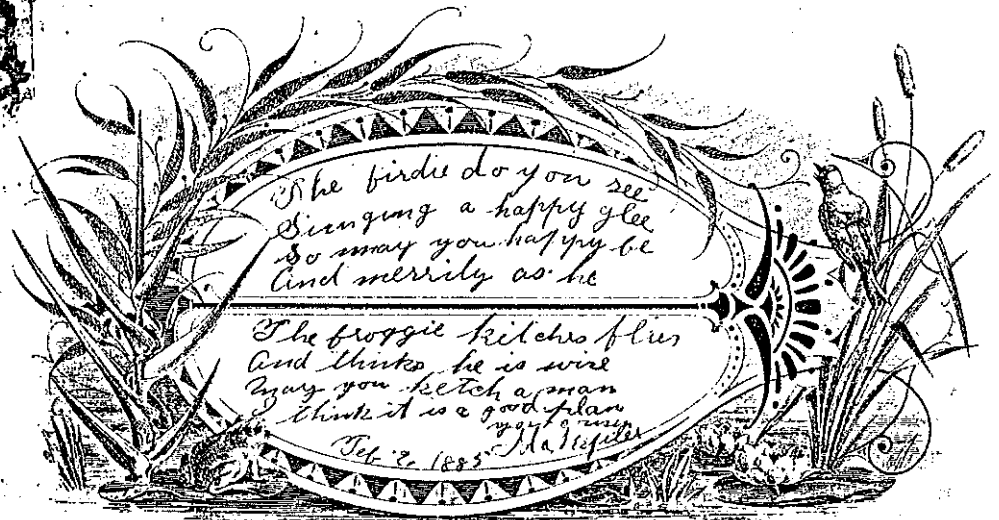 The birdie do you see
Sininging a happy glee
So may you happy be
And merrily as he
The froggie kitches flies
And thinks he is wise
may you ketch a man
I think it is a good plan
your cousin
Feb 2, 1885